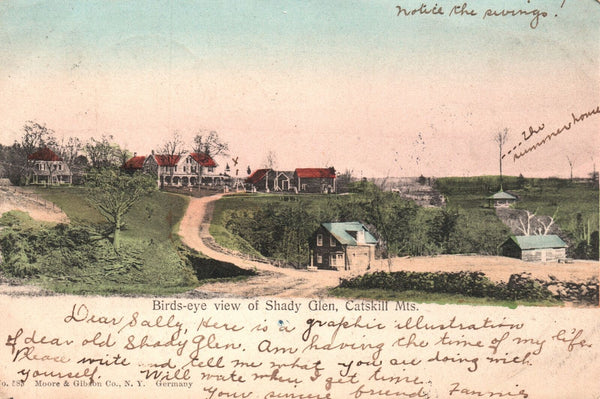 Notice the swings!
The
summer home
Birds-eye view of Shady Glen, Catskill Mts.
Dear Sally, Here is a graphic illustration
of dear old Shady Glen. Am having the time of my life.
Please write and tell me what you are doing with
yourself. Will wate when I get time.
No. 585 Moore & Gibson Co., N. Y. Germany
Your sincere friend, Fannie